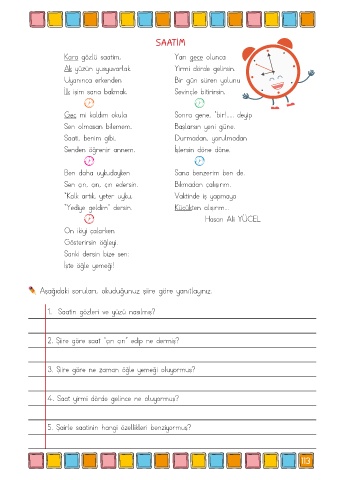 SAATİM
Kara gözlü saatim,
Ak yüzün yusyuvarlak.
Uyanınca erkenden
İlk işim sana bakmak.
Geç mi kaldım okula
Sen olmasan bilemem.
Saati, benim gibi,
Senden öğrenir annem.
Ben daha uykudayken
Sen çın, çın, çın edersin.
"Kalk artık, yeter uyku,
"Yediye geldim" dersin.
On ikiyi çalarken
Gösterirsin öğleyi.
Sanki dersin bize sen:
İşte öğle yemeği!
Yarı gece olunca
Yirmi dörde gelirsin.
Bir gün süren yolunu
Sevinçle bitirirsin.
Sonra gene, "bir!..... deyip
Başlarsın yeni güne.
Durmadan, yorulmadan
İşlersin döne döne.
Sana benzerim ben de
Bıkmadan çalışırım.
Vaktinde iş yapmaya
Küçükten alışırım...
Hasan Ali YÜCEL
Aşağıdaki soruları, okuduğunuz şiire göre yanıtlayınız.
1. Saatin gözleri ve yüzü nasılmış?
2. Şiire göre saat "çın çın" edip ne dermiş?
3. Şiire göre ne zaman öğle yemeği oluyormuş?
4. Saat yirmi dörde gelince ne oluyormuş?
5. Şairle saatinin hangi özellikleri benziyormuş?